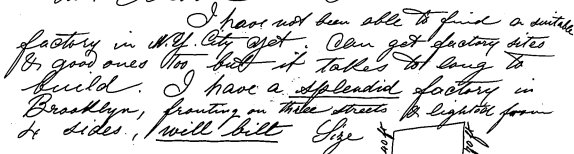 I have not been able to find a suitable
factory in N.Y. City yet. Can get factory sites
& good ones too but it takes to long to
build. I have a splendid factory in
Brooklyn, fronting on three streets & lighted from
4 sides, will bilt Size
40 ft